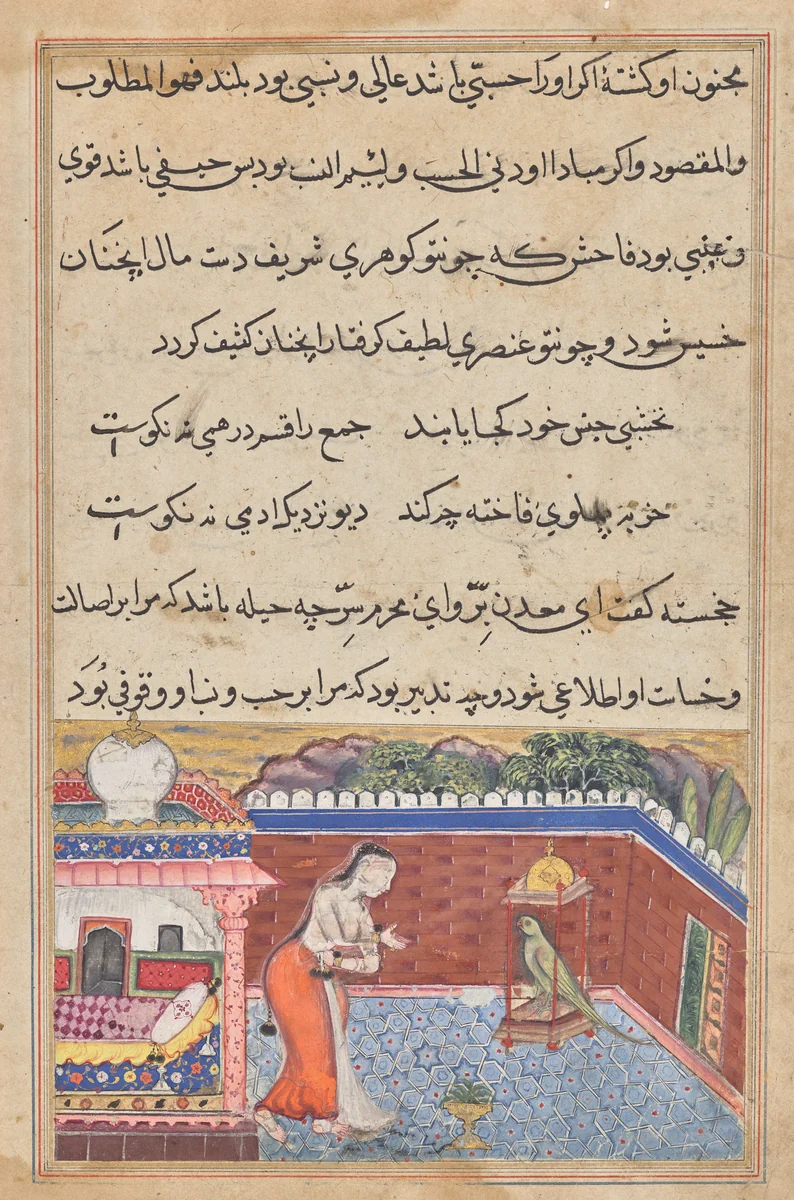 مجنون او کشتۀ اکر اورا حسبتي باشد عالي و نسبي بود بلند فهو المطلوب
والمقصود و اکر مبادا او دني الحسب و لئيم النسب بود بس حيفي باشد قوي
و غبني بود فاحش که چونتو کوهري شريف دست مال اينچنان
خسيس شود و چونتو عنصري لطيف کرفتار اينچنان کثيف کردد
نخشبي جنس خود کجا يابند جمع را قسم درهمي نه نکوست
خر به پهلوي فاخته چه کند ديو نزديک ادمي نه نکوست
خجسته کفت اي معدن برّ و اي محرم سرّ چه حيله باشد که مرا بر اصالت
و خساست او اطلاعي شود و چه تدبير بود که مرا بر حسب و نسب او وقوفي بُوَد